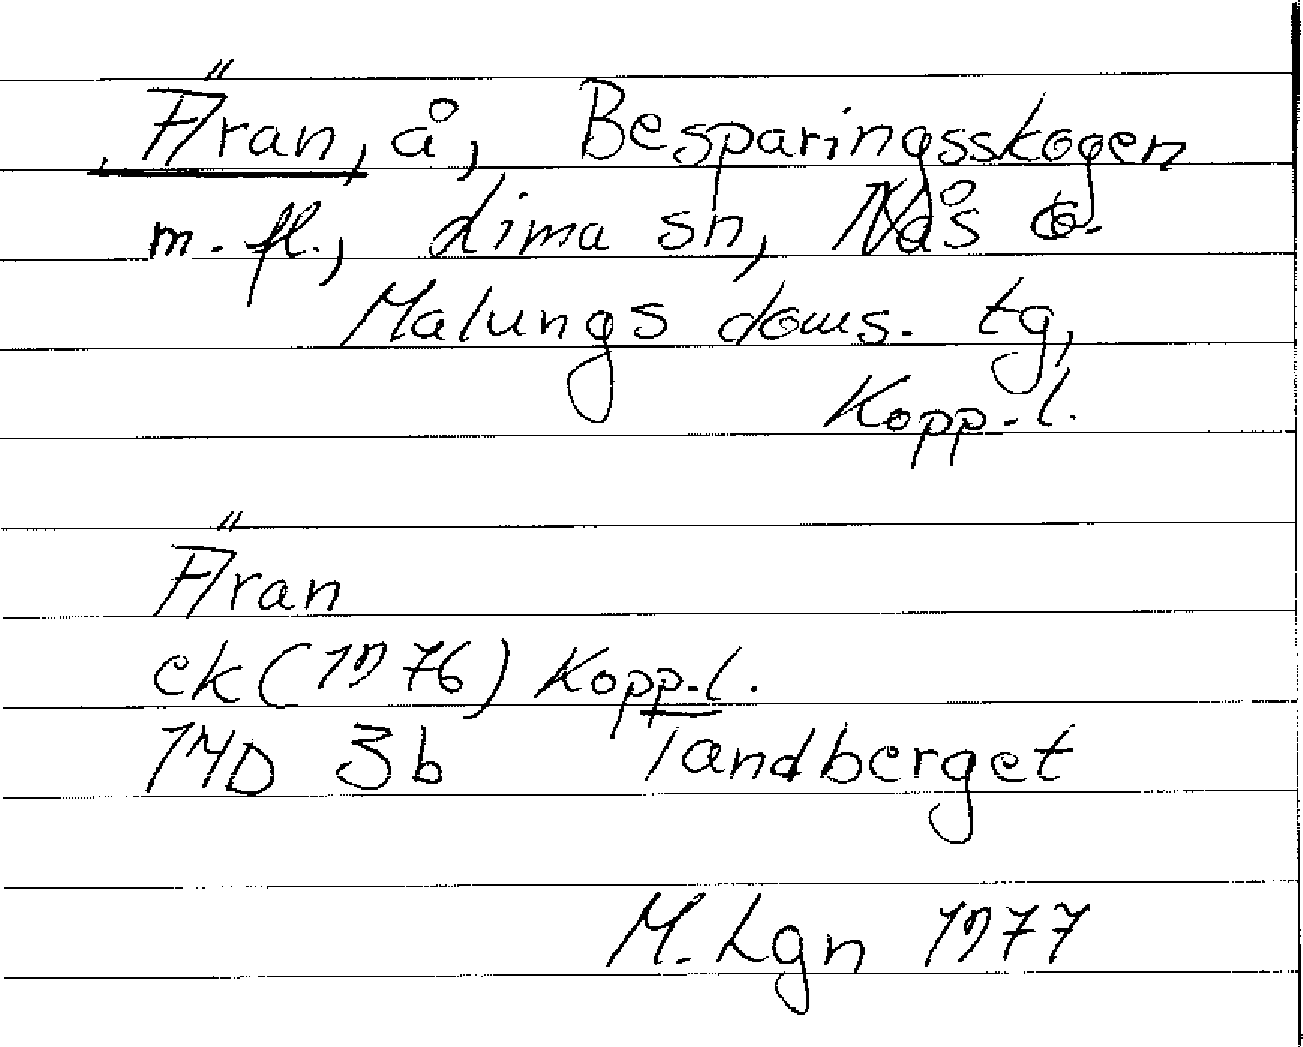 Äran, å, Besparingsskogen
m. fl., Lima sn, Nås o.
Malungs doms. tg,
Kopp. l.
Äran
ek (1976) Kopp. l.
14D 3b Tandberget
M. Lgn 1977